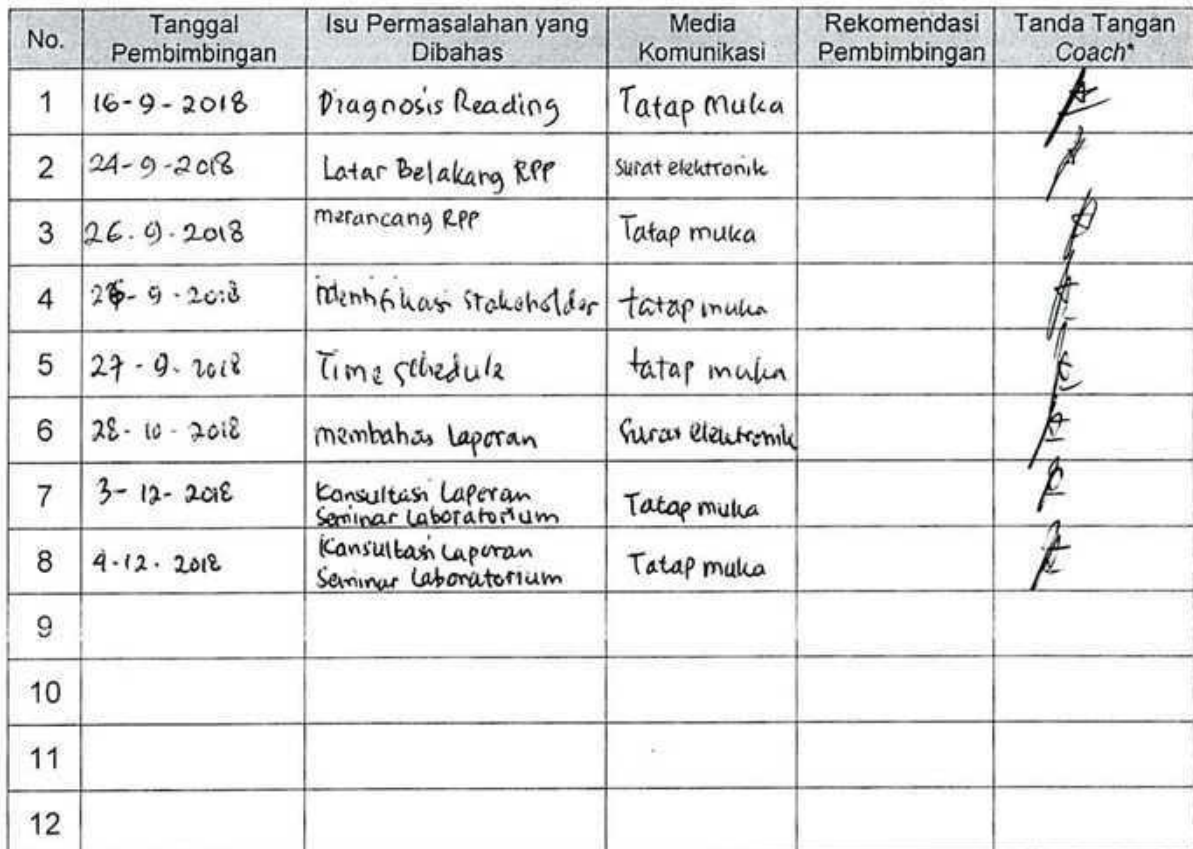 No. Tanggal Pembimbingan Isu Permasalahan yang Dibahas Media Komunikasi Rekomendasi Pembimbingan Tanda Tangan Coach*
1 16-9-2018 Diagnosis Reading Tatap Muka
2 24-9-2018 Latar Belakang RPP surat elektronik
3 26.9.2018 merancang RPP Tatap muka
4 26-9-2018 identifikasi stakeholder tatap muka
5 27-9-2018 Time schedule tatap muka
6 28-10-2018 membahas laporan surat elektronik
7 3-12-2018 Konsultasi Laporan Seminar Laboratorium Tatap muka
8 4.12.2018 Konsultasi Laporan Seminar Laboratorium Tatap muka
9
10
11
12